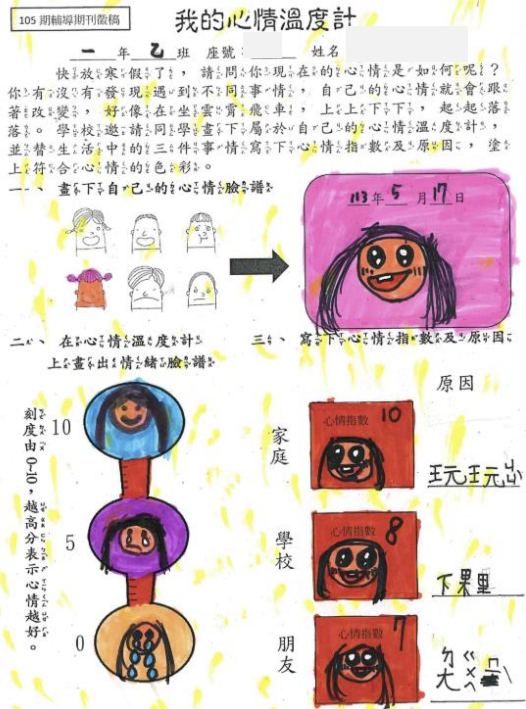 105 期輔導期刊徵稿
我的心情溫度計
一 年 乙 班 座號： 姓名
快放寒假了，請問你現在的心情是如何呢？
你有沒有發現遇到不同事情，自己的心情就會跟
著改變，好像在坐雲霄飛車，上上下下，起起落
落。學校邀請同學畫下屬於自己的心情溫度計，
並替生活中的三件事情寫下心情指數及原因，塗
上符合心情的色彩。
一、畫下自己的心情臉譜
113 年 5 月 17 日
二、在心情溫度計
上畫出情緒臉譜
三、寫下心情指數及原因
刻度由 0-10，越高分表示心情越好。
10
5
0
原因
家庭
心情指數 10
學校
心情指數 8
下果里
朋友
心情指數 7